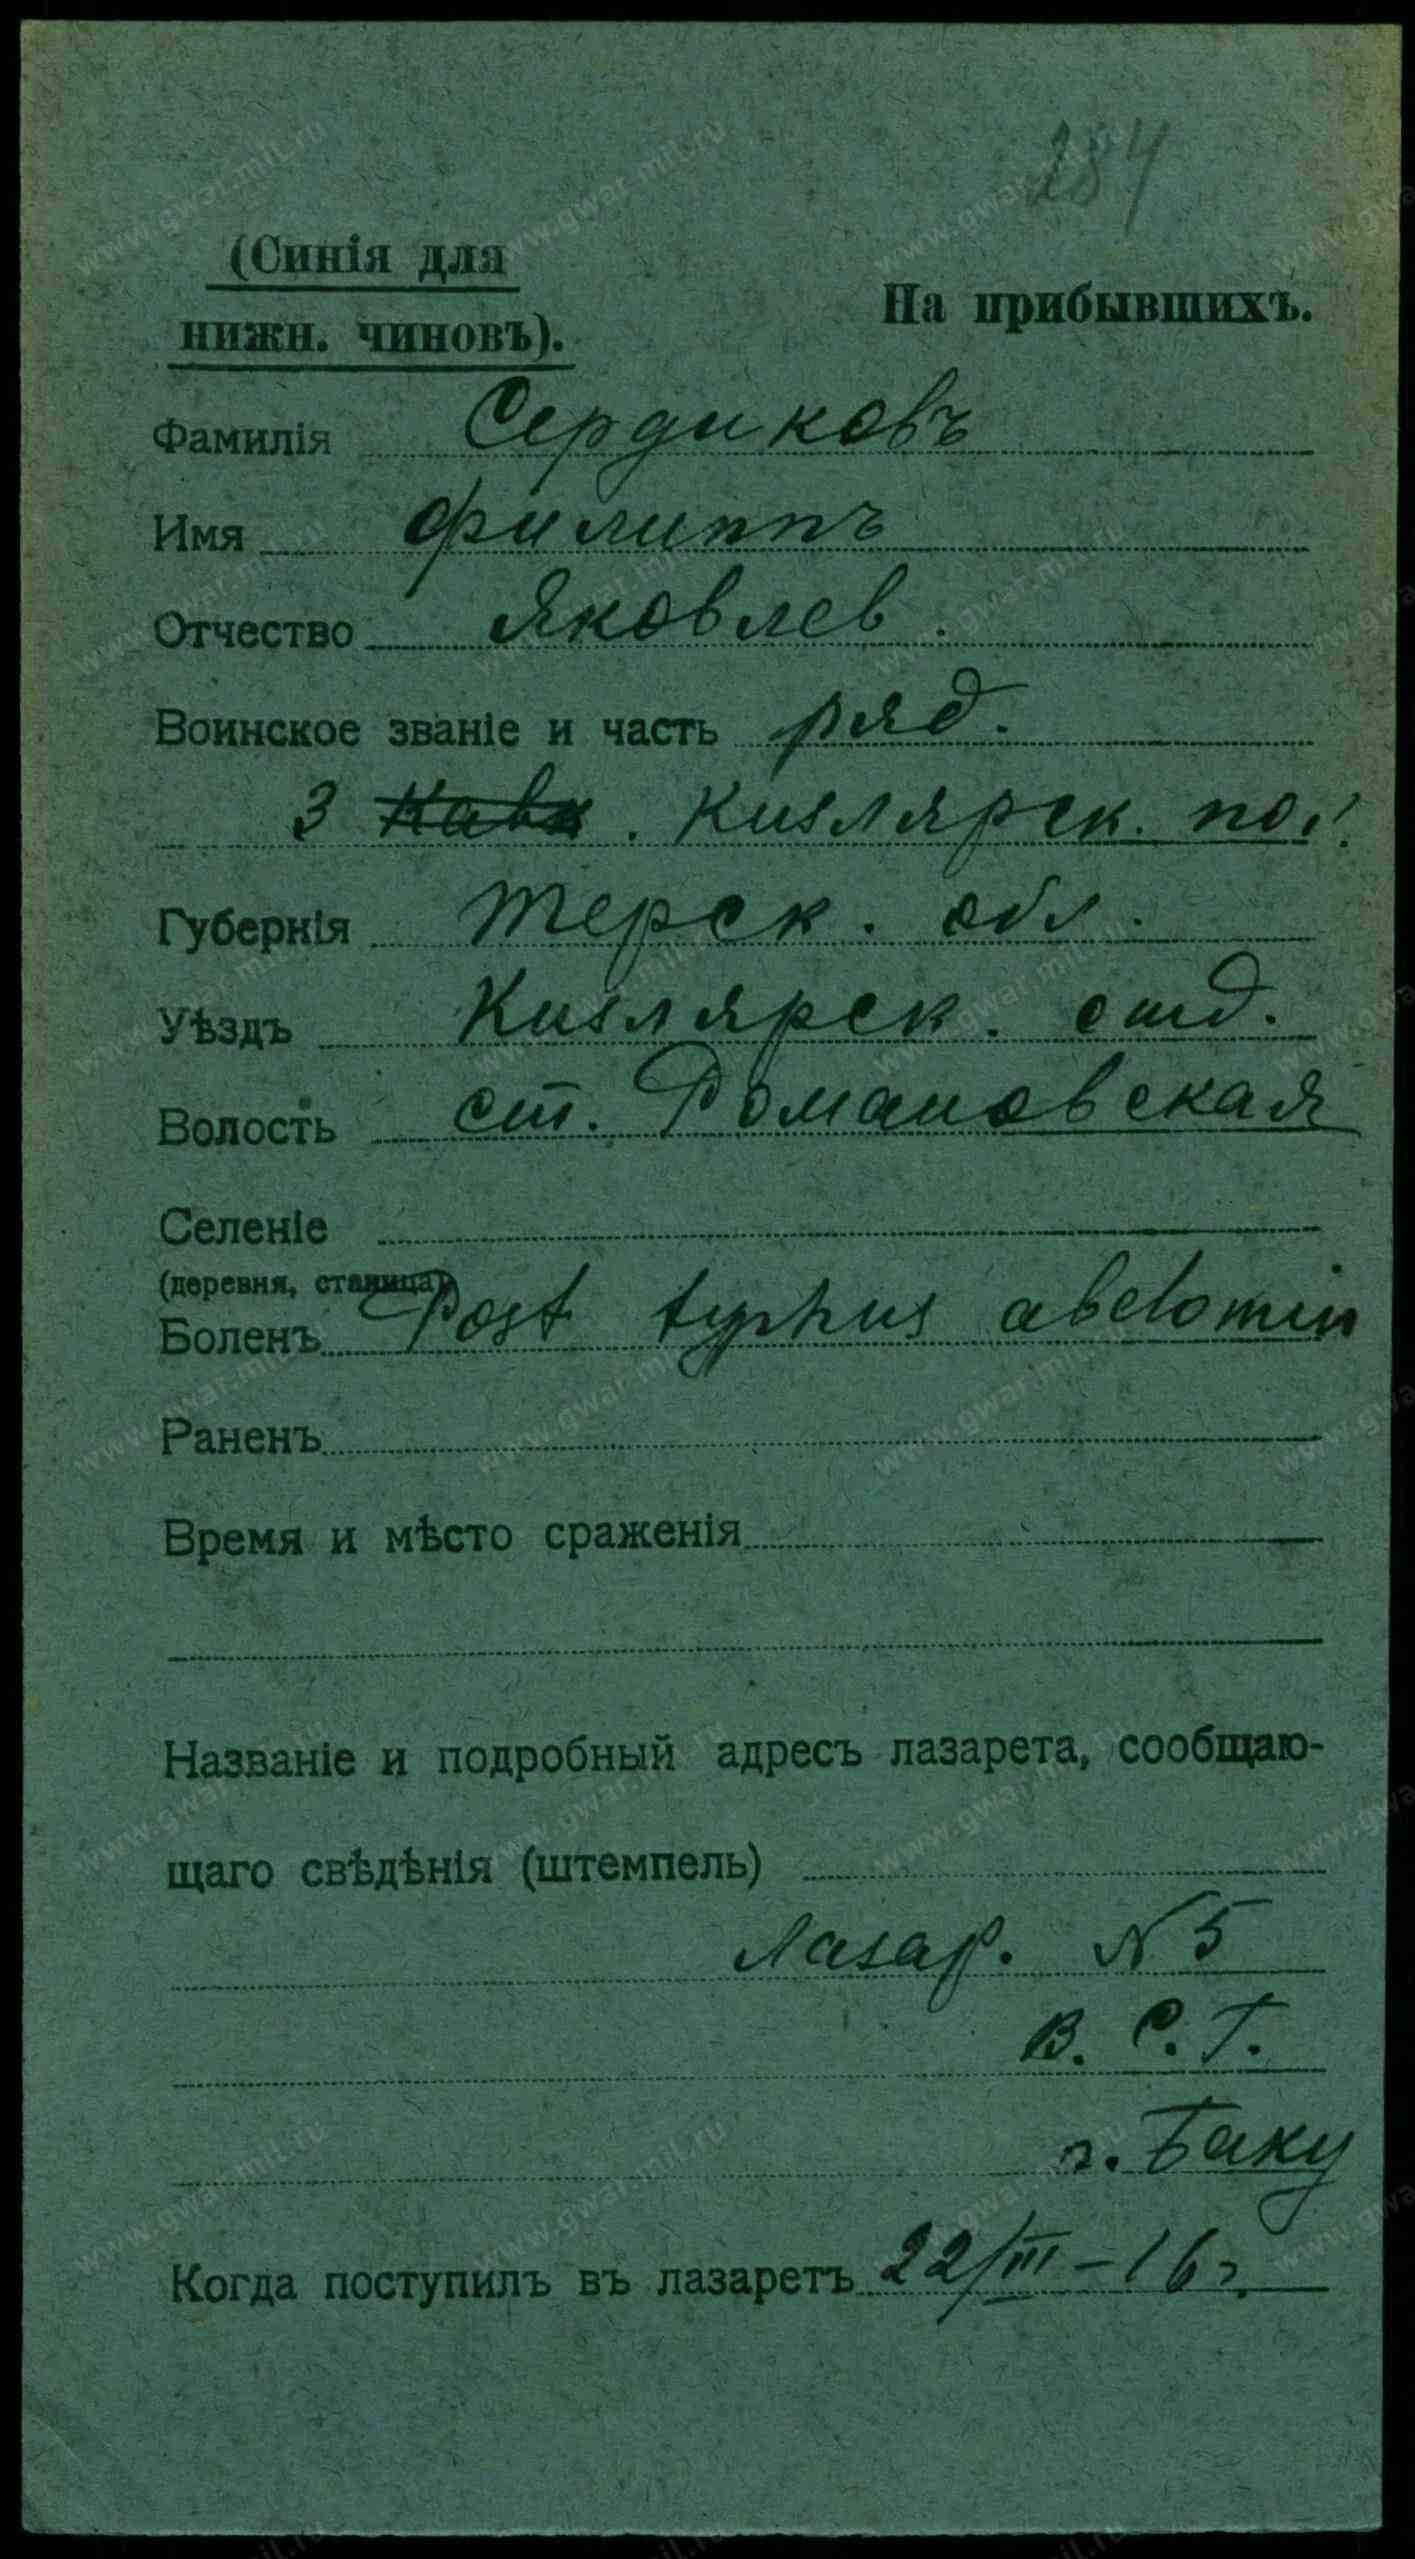 284
(Синія для
нижн. чиновъ).
На прибывшихъ.
Фамилія Сердиковъ
Имя Филиппъ
Отчество Яковлев.
Воинское званіе и часть ряд.
3 Кавк. Кизлярск. пол.
Губернія Терск. обл.
Уѣздъ Кизлярск. отд.
Волость ст. Романовская
Селеніе
(деревня, станица)
Боленъ Post typhus abdomin
Раненъ
Время и мѣсто сраженія
Названіе и подробный адресъ лазарета, сообщаю-
щаго свѣдѣнія (штемпель)
Лазар. N 5
В. С. Г.
г. Баку
Когда поступилъ въ лазаретъ 22/III-16 г.
www.gwar.mil.ru